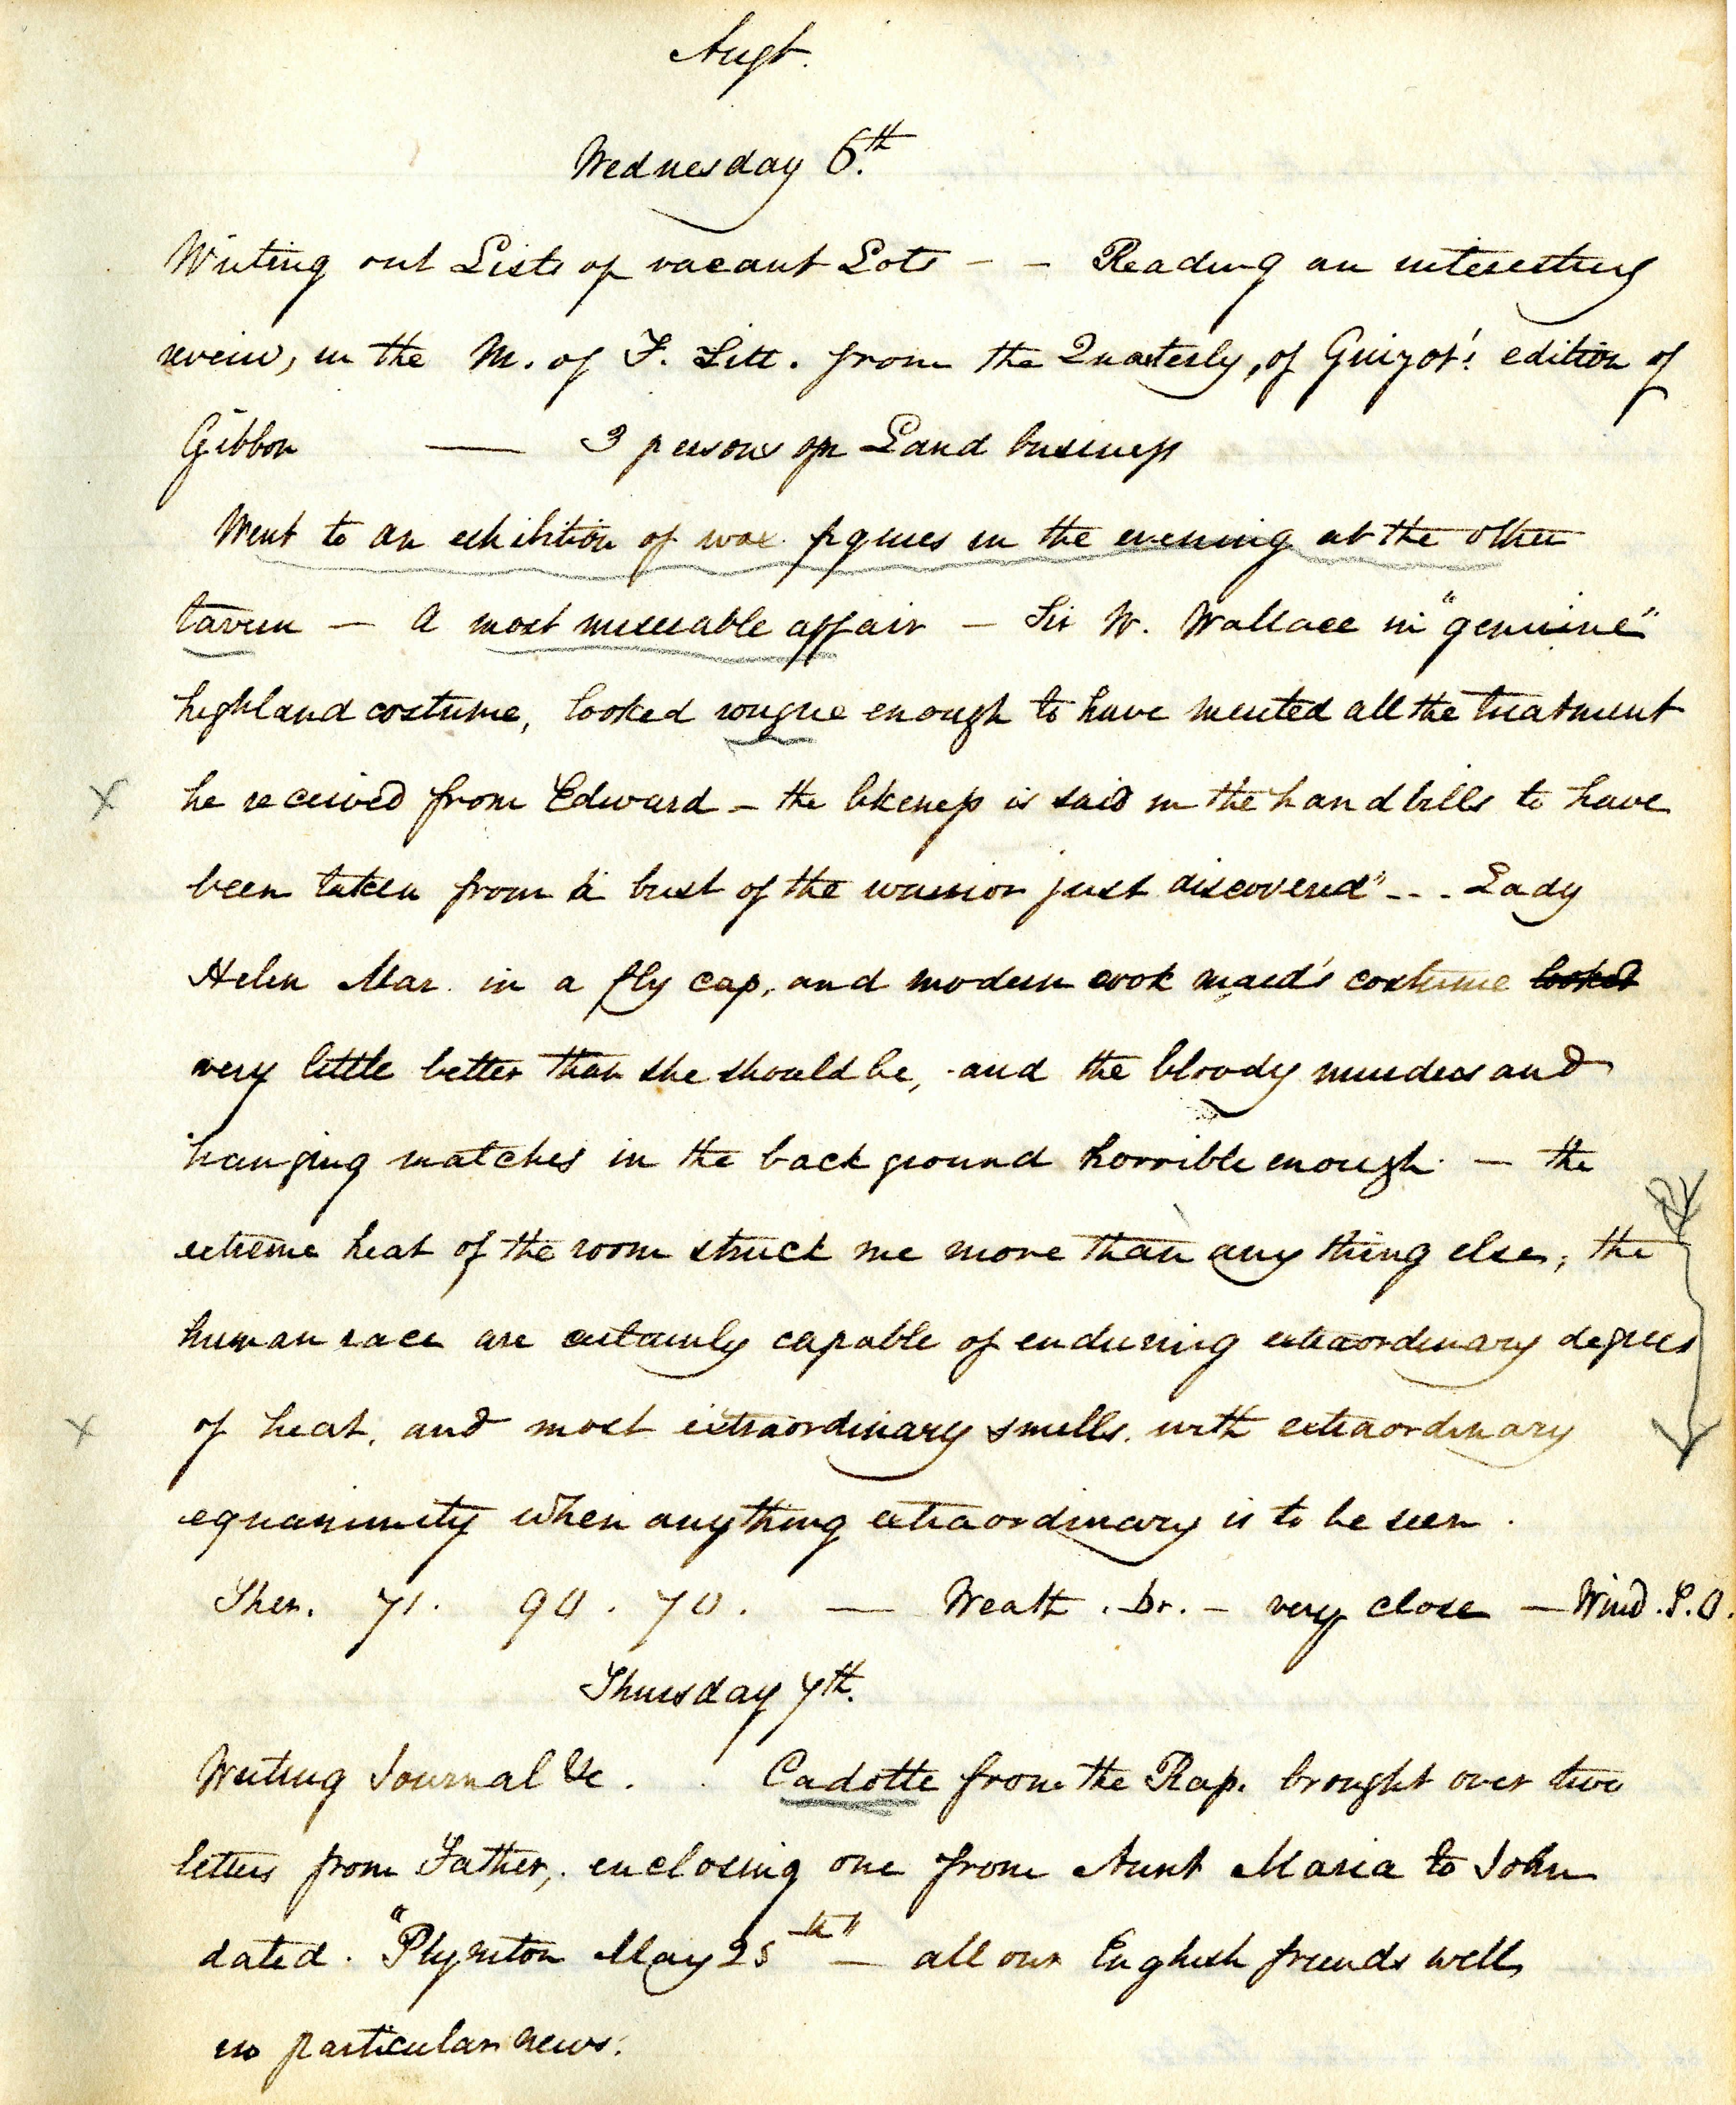 Augt.
Wednesday 6th.
Writing out Lists of vacant Lots - - Reading an interesting
reveiw, in the M. of F. Litt. from the Quarterly, of Guizot's edition of
Gibbon — 3 persons on Land business
Went to an exhibition of wax figures in the evening at the other
tavern — A most miserable affair — Sir W. Wallace in "genuine"
highland costume, looked rougue enough to have merited all the treatment
he received from Edward - the likeness is said in the handbills to have
been taken from "a bust of the warrior just discovered" - - - Lady
Helen Mar in a fly cap, and modern cook maid's costume looked
very little better than she should be, and the bloody murders and
hanging matches in the back ground horrible enough — the
extreme heat of the room struck me more than any thing else, the
human race are certainly capable of enduring extraordinary degrees
of heat, and most extraordinary smells, with extraordinary
equanimity when anything extraordinary is to be seen.
Ther. 71. 90. 70. — Weath. Dr. - very close — Wind. S.O.
Thursday 7th.
Writing Journal &c. . Cadotte from the Rap. brought over two
letters from Father, enclosing one from Aunt Maria to John
dated. "Plympton May 25th" — all our English friends well
no particular news.